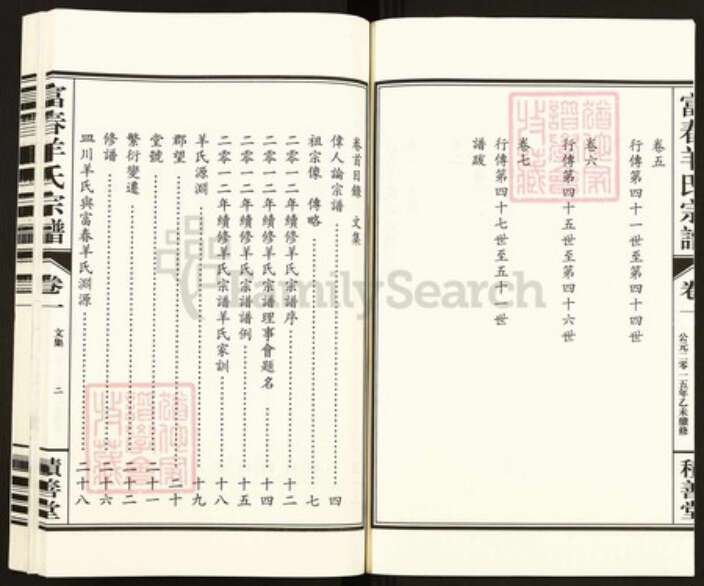 富春羊氏宗譜
卷一
公元二零一五年乙未續修
積善堂
卷五
行傳第四十一世至第四十四世
卷六
行傳第四十五世至第四十六世
卷七
行傳第四十七世至五十一世
譜跋
FamilySearch
卷首目錄 文集
偉人論宗譜 四
祖宗像 傳略 七
二零一二年續修羊氏宗譜序 十二
二零一二年續修羊氏宗譜理事會題名 十四
二零一二年續修羊氏宗譜譜例 十五
二零一二年續修羊氏宗譜羊氏家訓 十八
羊氏源淵 十九
郡望 二十
堂號 二十一
繁衍變遷 二十二
修譜 二十六
四川羊氏與富春羊氏淵源 二十八
富春羊氏宗譜
卷一
文集
二
積善堂